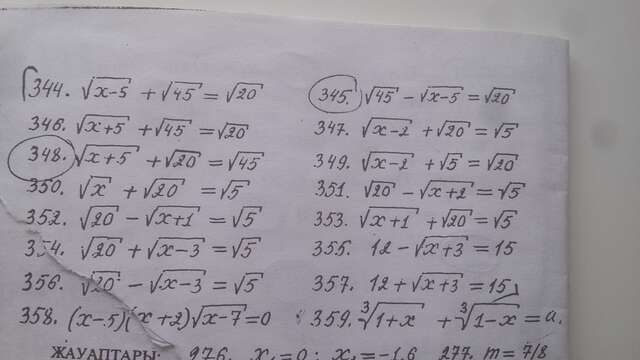 344. √x-5 + √45 = √20 345. √45 - √x-5 = √20
346. √x+5 + √45 = √20 347. √x-2 + √20 = √5
348. √x+5 + √20 = √45 349. √x-2 + √5 = √20
350. √x + √20 = √5 351. √20 - √x+2 = √5
352. √20 - √x+1 = √5 353. √x+1 + √20 = √5
354. √20 + √x-3 = √5 355. 12 - √x+3 = 15
356. √20 - √x-3 = √5 357. 12 + √x+3 = 15
358. (x-5)(x+2)√x-7 = 0 359. ∛1+x + ∛1-x = a.
ЖАУАПТАРЫ: 276. x₁=0; x₂=-1,6 277. m = 7/8